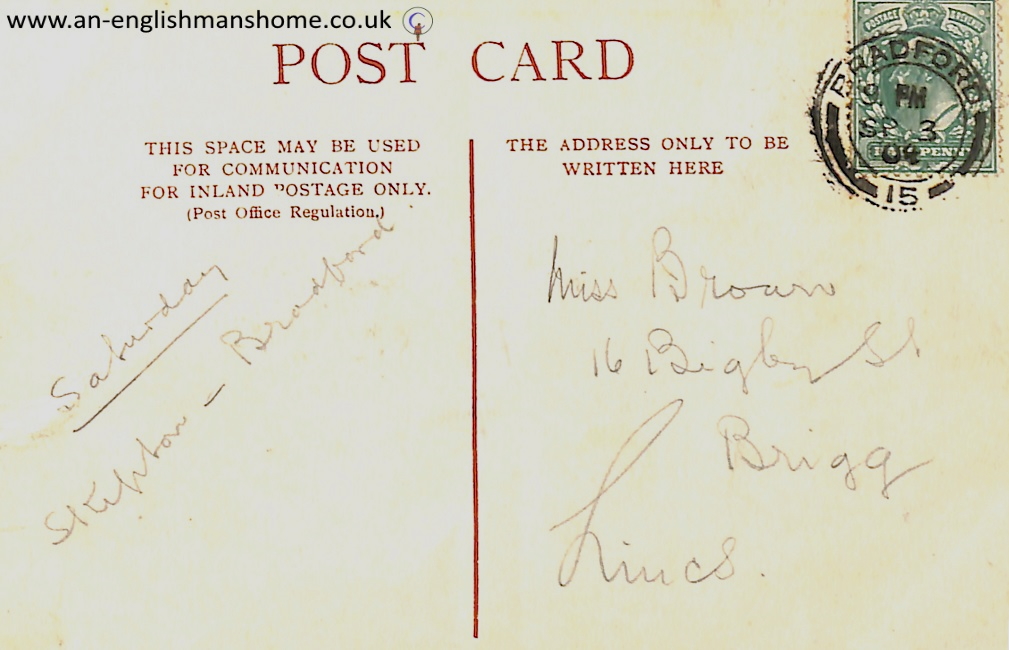 www.an-englishmanshome.co.uk
POST CARD
THIS SPACE MAY BE USED
FOR COMMUNICATION
FOR INLAND POSTAGE ONLY.
(Post Office Regulation.)
Saturday
Skipton – Bradford
THE ADDRESS ONLY TO BE
WRITTEN HERE
POSTAGE
BRADFORD
PM
SP 3
04
15
Miss Brown
16 Bigby St
Brigg
Lincs.